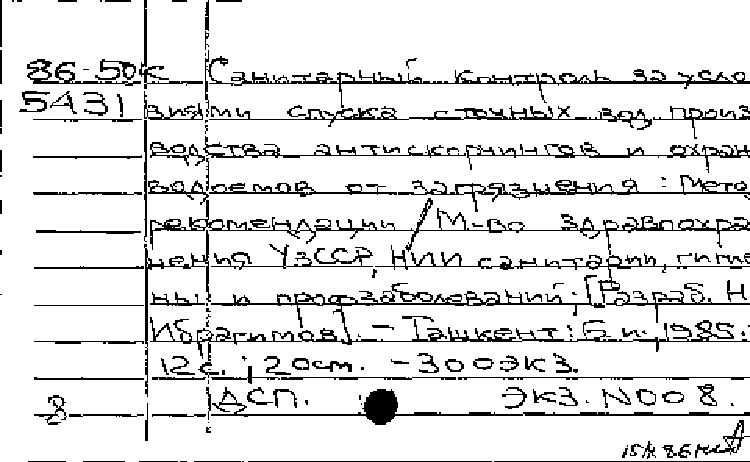 86-50к Санитарный контроль за усло
5431 виями спуска сточных вод произ
водства антискорчингов и охран
водоемов от загрязнения: Мето
рекомендации / М-во здравоохра
нения УзССР, НИИ санитарии, гигие
ны и профзаболеваний; [Разраб. Н.
Ибрагимов]. - Ташкент: Б.и., 1985.
12с.; 20см. - 300экз.
8 ДСП. Экз. N008.